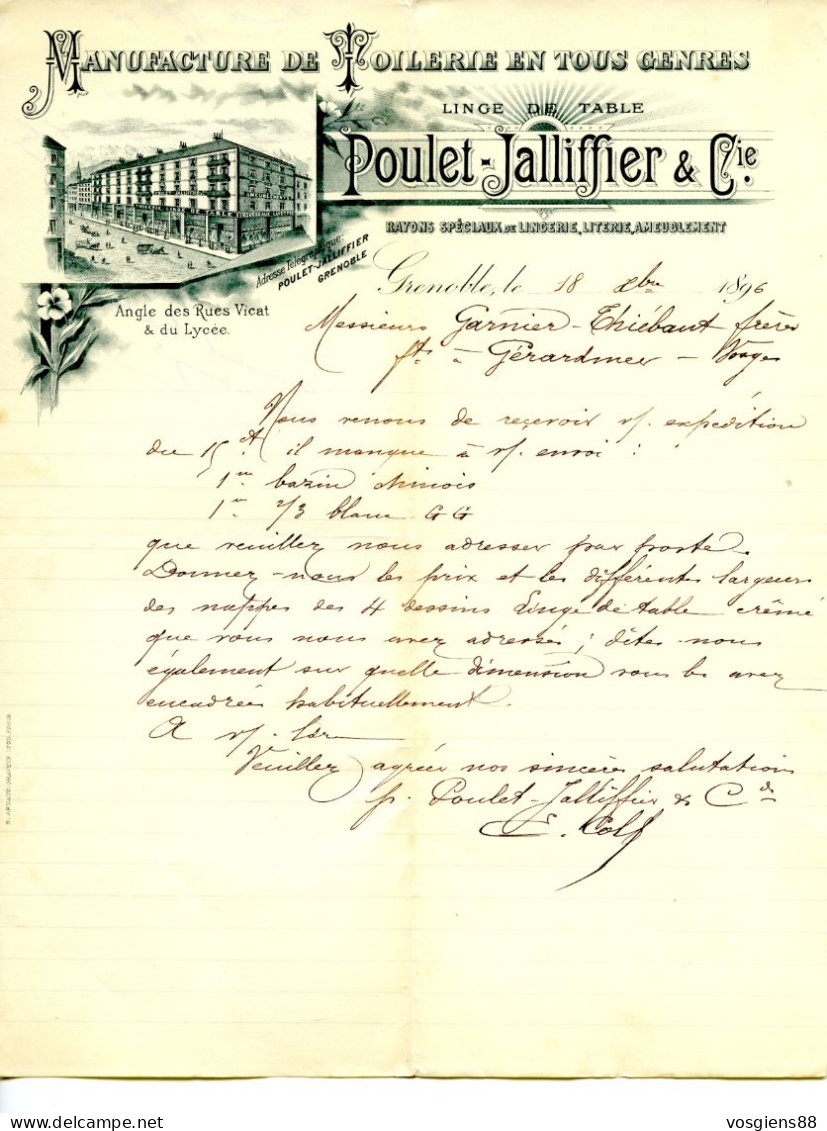 MANUFACTURE DE TOILERIE EN TOUS GENRES
LINGE DE TABLE
Poulet-Jalliffier & Cie.
RAYONS SPÉCIAUX DE LINGERIE, LITERIE, AMEUBLEMENT
Adresse Télégraphique:
POULET-JALLIFFIER
GRENOBLE
Angle des Rues Vicat
& du Lycée.
Grenoble, le 18 Xbre 1896
Messieurs Garnier-Thiébaut frères
fts à Gérardmer - Vosges
Nous venons de recevoir v/. expédition
du 15 ct il manque à v/. envoi :
1 bazin chinois
1 2/3 blanc GG
que veuillez nous adresser par poste.
Donnez-nous les prix et les différentes largeurs
des nappes des 4 dessins Linge de table crêmé
que vous nous avez adressés ; dites nous
également sur quelle dimension vous les avez
encadrées habituellement.
A v/.
Veuillez agréer nos sincères salutations
p. Poulet-Jalliffier & Cie
vosgiens88